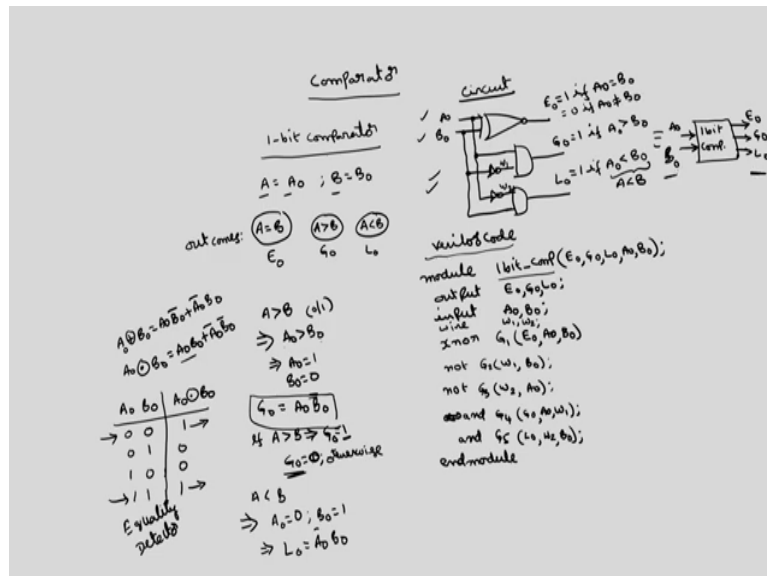 Comparator
1-bit comparator
A = A₀ ; B = B₀
outcomes: A=B A>B A<B
E₀ G₀ L₀
A₀⊕B₀ = A₀B̅₀ + A̅₀B₀
A₀⊙B₀ = A₀B₀ + A̅₀B̅₀
A₀ B₀ A₀⊙B₀
→ 0 0 1 →
0 1 0
1 0 0
→ 1 1 1 →
Equality
Detector
A>B (0/1)
⇒ A₀>B₀
⇒ A₀=1
B₀=0
G₀ = A₀B̅₀
if A>B ⇒ G₀=1
G₀=0; otherwise
A<B
⇒ A₀=0 ; B₀=1
⇒ L₀ = A̅₀B₀
Circuit
A₀
B₀
E₀=1 if A₀=B₀
=0 if A₀≠B₀
G₀=1 if A₀>B₀
w₁
L₀=1 if A₀<B₀
A<B
w₂
A₀
B₀
1bit
comp.
E₀
G₀
L₀
verilog code
module 1bit_comp(E₀,G₀,L₀,A₀,B₀);
output E₀,G₀,L₀;
input A₀,B₀;
wire w₁,w₂;
xnor G₁(E₀,A₀,B₀)
not G₂(w₁,B₀);
not G₃(w₂,A₀);
and G₄(G₀,A₀,w₁);
and G₅(L₀,w₂,B₀);
endmodule